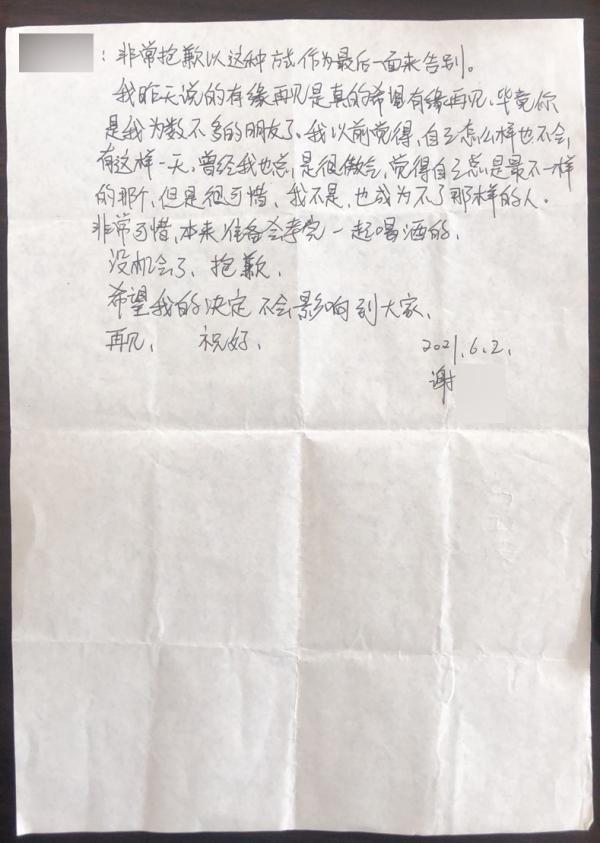 ：非常抱歉以这种方式作为最后一面来告别。
我昨天说的有缘再见是真的希望有缘再见，毕竟你
是我为数不多的朋友了。我以前觉得，自己怎么样也不会，
有这样一天，曾经我也总是很傲气，觉得自己总是最不一样
的那个，但是很可惜，我不是，也成为不了那样的人。
非常可惜，本来准备会考完一起喝酒的，
没机会了，抱歉，
希望我的决定不会影响到大家，
再见， 祝好， 2021.6.2,
谢